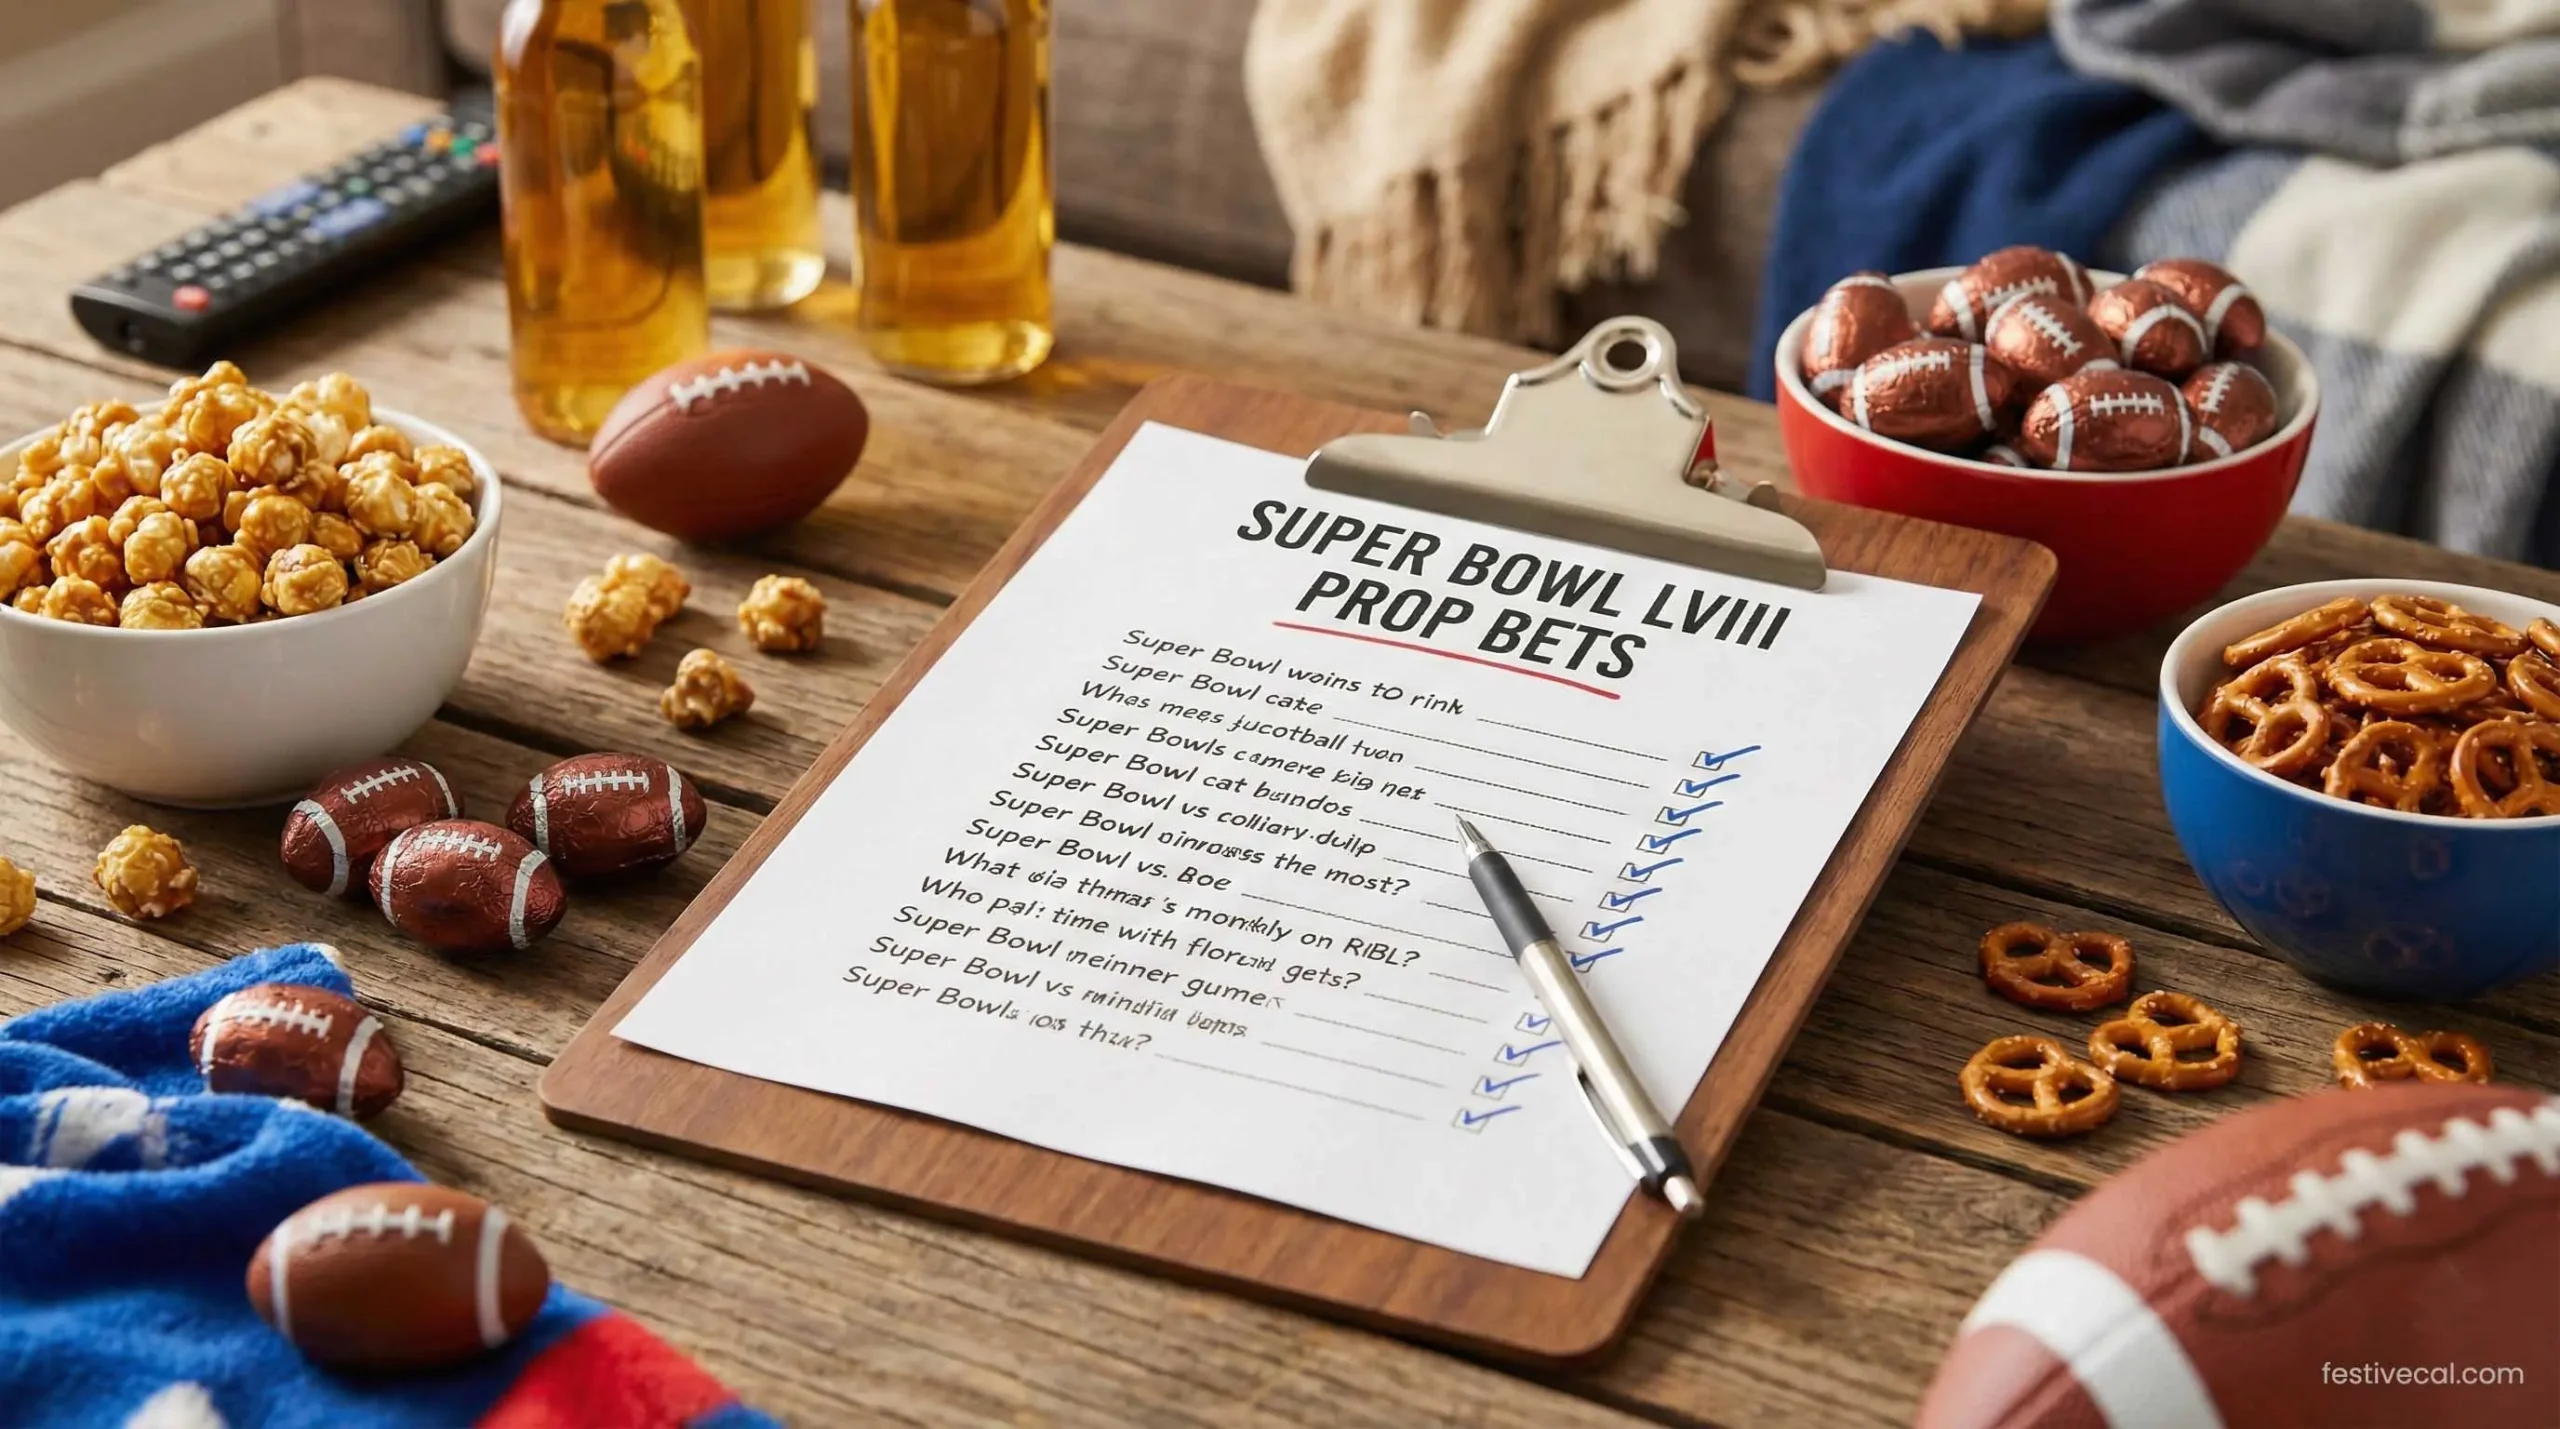 SUPER BOWL LVIII
PROP BETS
Super Bowl woins to rink
Super Bowl cate
Whas mees jucotball tuon
Super Bowls camere big net
Super Bowl cat bundos
Super Bowl vs colliary.dulip
Super Bowl the most?
Super Bowl vs. Boe
What thmas's on RIBL?
Who pal: time with gets?
Super Bowl meinner gumer
Super Bowl vs
Super Bowls
festivecal.com